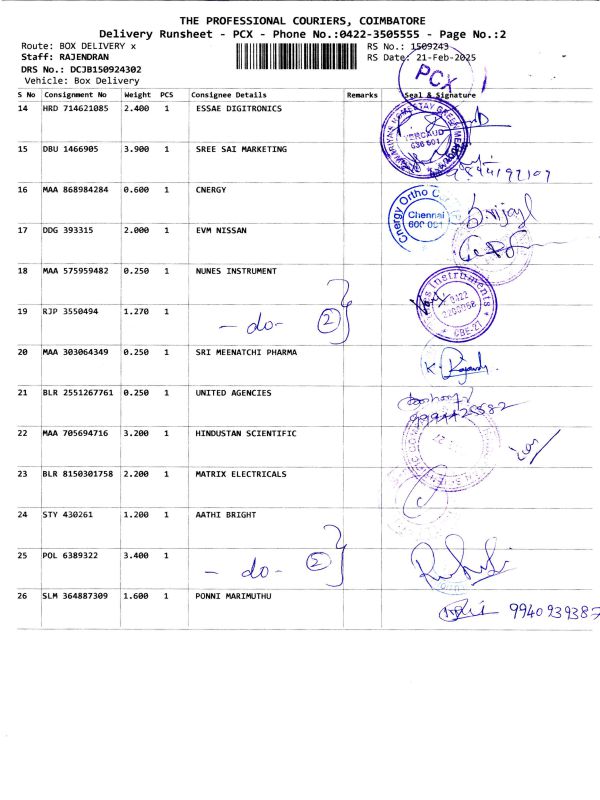 THE PROFESSIONAL COURIERS, COIMBATORE
Delivery Runsheet - PCX - Phone No.:0422-3505555 - Page No.:2
Route: BOX DELIVERY x RS No.: 1509243
Staff: RAJENDRAN RS Date: 21-Feb-2025
DRS No.: DCJB150924302
Vehicle: Box Delivery
PCX
S No Consignment No Weight PCS Consignee Details Remarks Seal & Signature
14 HRD 714621085 2.400 1 ESSAE DIGITRONICS
YERCAUD
636 601
15 DBU 1466905 3.900 1 SREE SAI MARKETING
16 MAA 868984284 0.600 1 CNERGY
Cnergy Ortho
Chennai
600 001
17 DDG 393315 2.000 1 EVM NISSAN
18 MAA 575959482 0.250 1 NUNES INSTRUMENT
Instruments
CBE-27
19 RJP 3550494 1.270 1 - do - 2
20 MAA 303064349 0.250 1 SRI MEENATCHI PHARMA
21 BLR 2551267761 0.250 1 UNITED AGENCIES
22 MAA 705694716 3.200 1 HINDUSTAN SCIENTIFIC
23 BLR 8150301758 2.200 1 MATRIX ELECTRICALS
24 STY 430261 1.200 1 AATHI BRIGHT
25 POL 6389322 3.400 1 - do - 2
26 SLM 364887309 1.600 1 PONNI MARIMUTHU 9940939387